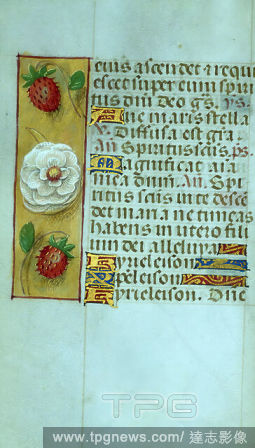 eius ascendet ⁊ requi
escet super eum spiri
tus dn̄i Deo gr̄s. p̄s.
Aue maris stella
V. Diffusa est gr̄a.
An̄ Spiritus sc̄s. p̄s.
Magnificat aīa
mea dn̄m. An̄. Spi
ritus sc̄s in te desce
det maria ne timeas
habens in utero filiu
um dei alleluia
Kyrieleison
Xpeleison
Kyrieleison. Dn̄e
TPG
www.tpgnews.com/達志影像